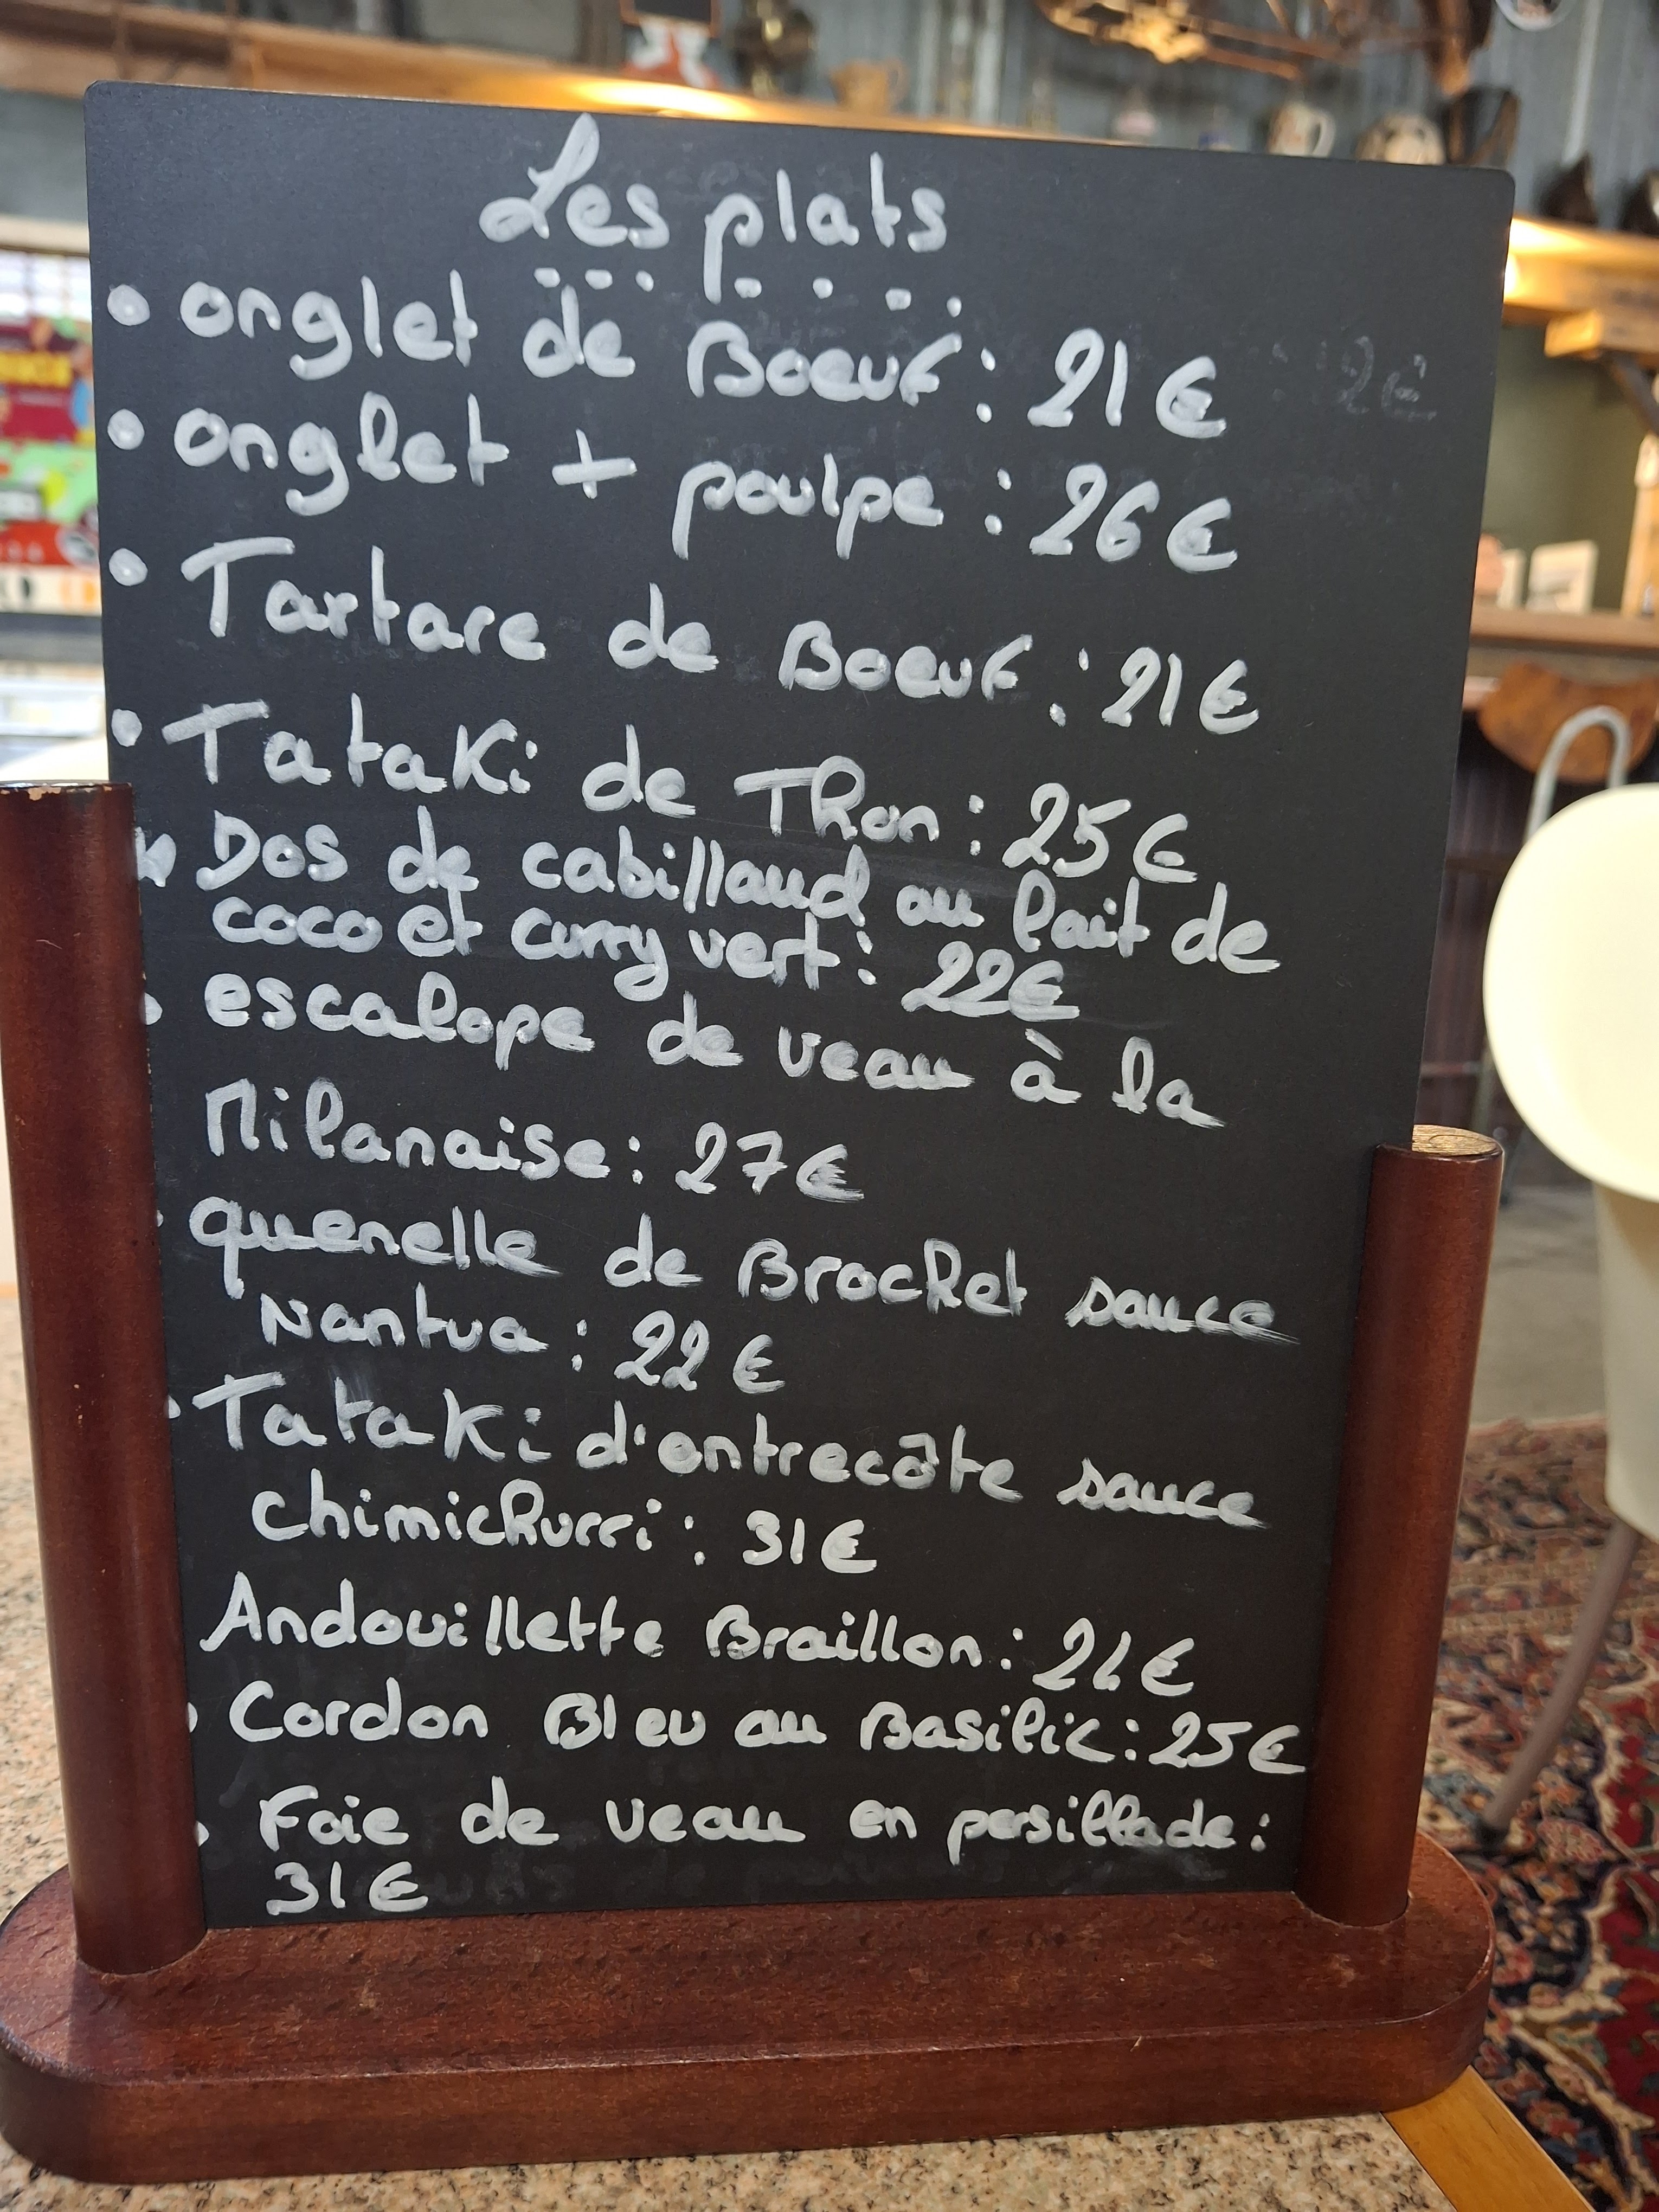 Les plats
• onglet de Boeuf : 21€
• onglet + poulpe : 26€
• Tartare de Boeuf : 21€
• Tataki de Thon : 25€
Dos de cabillaud au lait de
coco et curry vert : 22€
• escalope de veau à la
Milanaise : 27€
• quenelle de Brochet sauce
Nantua : 22€
• Tataki d'entrecôte sauce
chimichurri : 31€
Andouillette Braillon :
• Cordon Bleu au Basilic : 25€
• Foie de veau en persillade :
31€